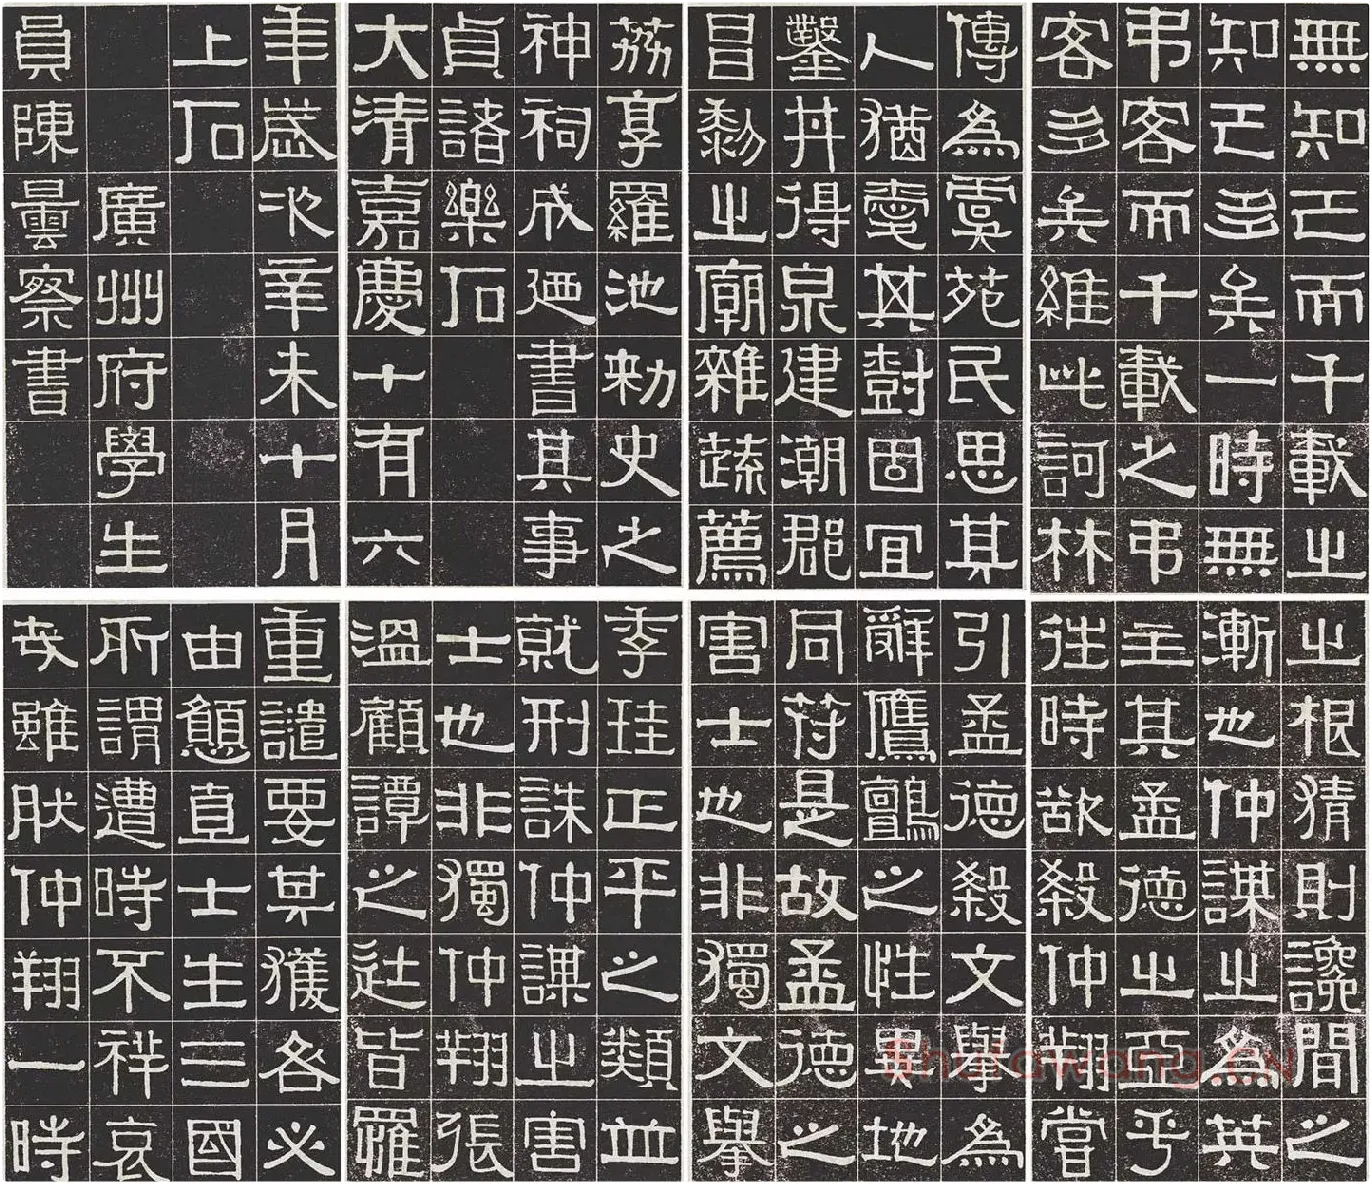 之根猜則讒間之
漸也仲謀之為英
主其孟德之亞乎
往時欲殺仲翔嘗
引孟德殺文舉為
辭鷹鸇之性異地
同符是故孟德之
害士也非獨文舉
季珪正平之類並
就刑誅仲謀之害
士也非獨仲翔張
溫顧譚之徒皆罹
重譴要其獲咎必
由戇直士生三國
所謂遭時不祥哀
哉雖然仲翔一時
無知己而千載之
知己多矣一時無
弔客而千載之弔
客多矣維此訶林
傳為虞苑民思其
人猶愛其樹固宜
鑿井得泉建潮郡
昌黎之廟雜蔬薦
荔享羅池刺史之
神祠成廼書其事
貞諸樂石
大清嘉慶十有六
年歲次辛未十月
上石
廣州府學生
員陳曇察書
Shufawang.CN